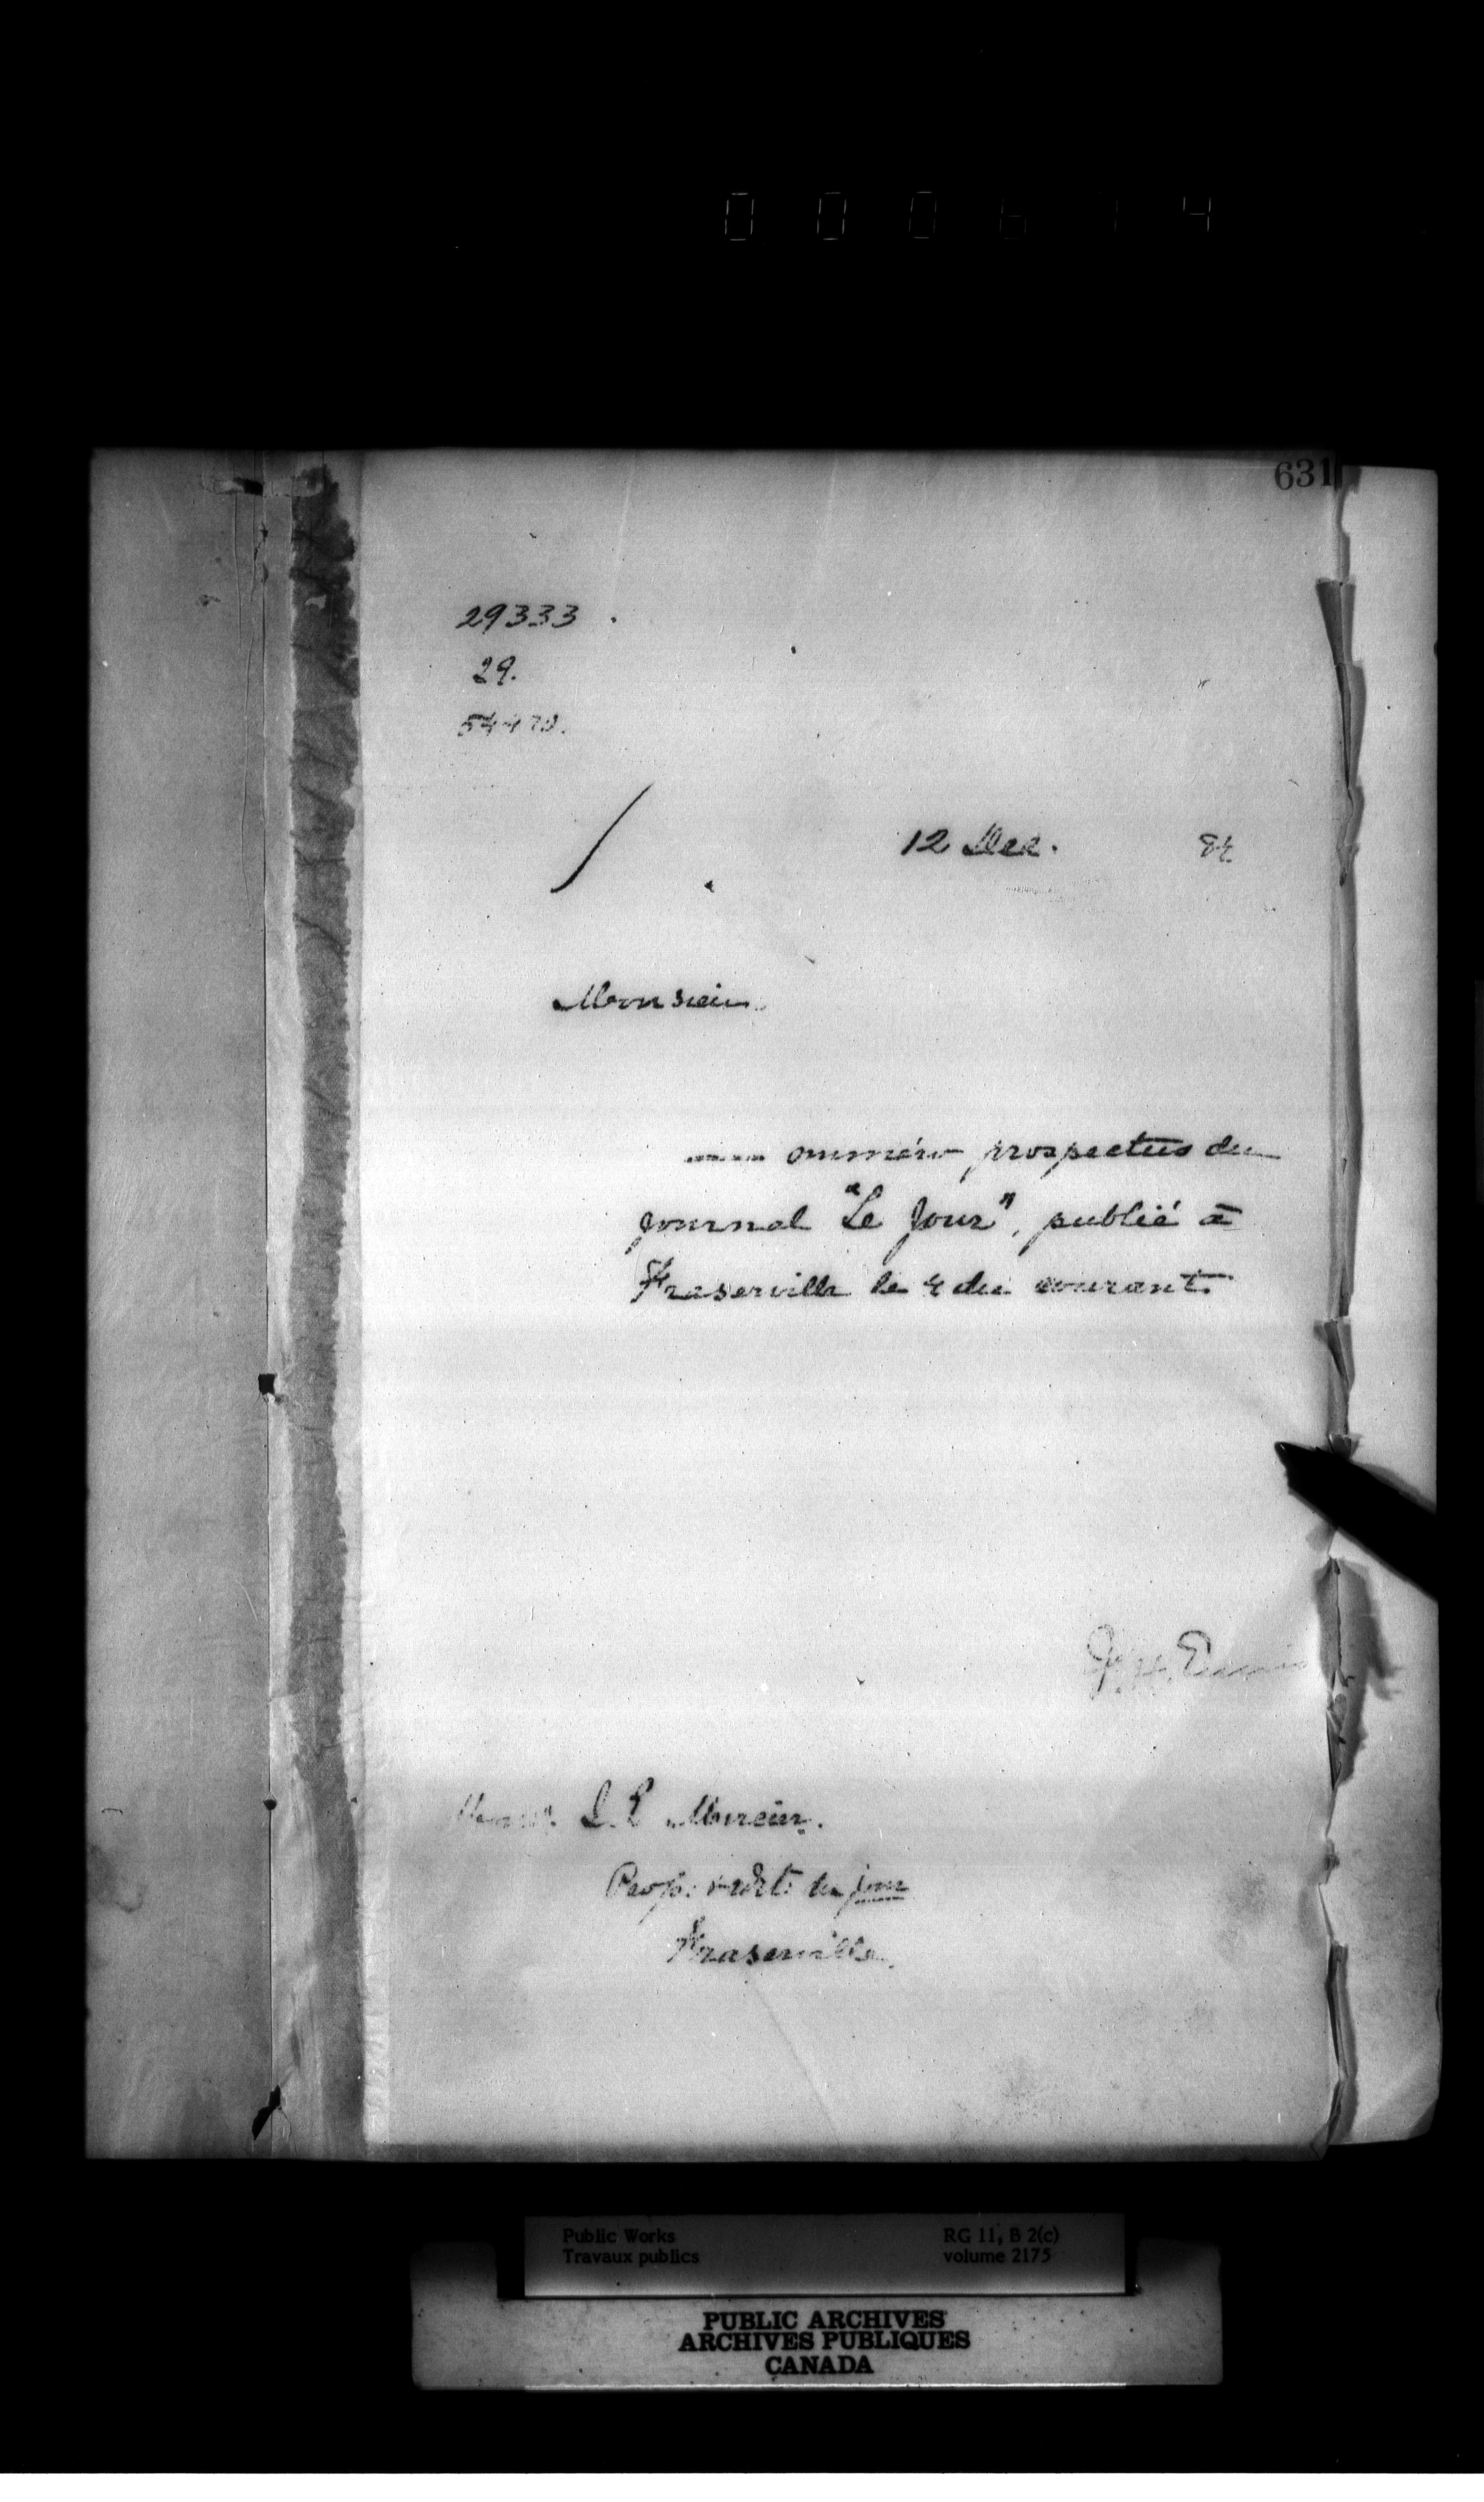 000614
631
29333.
29.
54470.
12 Dec. 84
Monsieur.
numéro prospectus du
journal "Le Jour", publié à
Fraserville le 4 du courant.
Mercier.
Prop. du jour
Fraserville.
Public Works
Travaux publics
RG 11, B 2(c)
volume 2175
PUBLIC ARCHIVES
ARCHIVES PUBLIQUES
CANADA